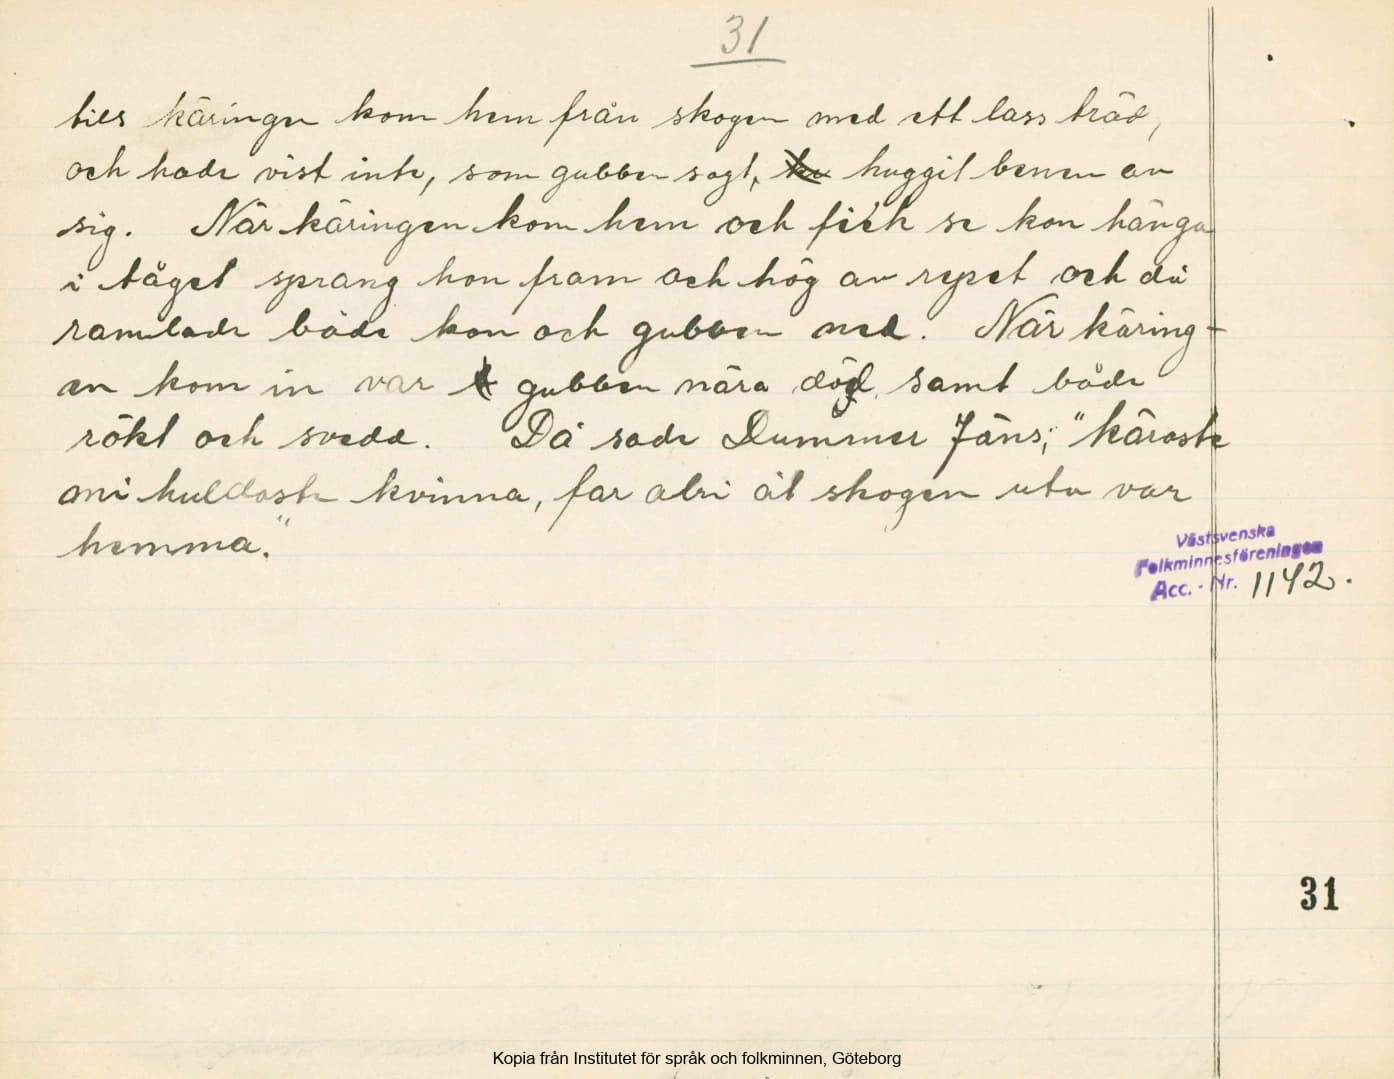 31
tills käringen kom hem från skogen med ett lass träd,
och hade vist inte, som gubben sagt, huggit benen av
sig. När käringen kom hem och fick se kon hänga
i tåget sprang hon fram och hög av repet och då
ramlade både kon och gubben ned. När käring-
en kom in var gubben nära död, samt både
rökt och svedd. Då sade Dummer Jäns; "käraste
mi huldaste kvinna, far alri åt skogen uta var
hemma."
Västsvenska
Folkminnesföreningen
Acc. - Nr. 1142.
31
Kopia från Institutet för språk och folkminnen, Göteborg